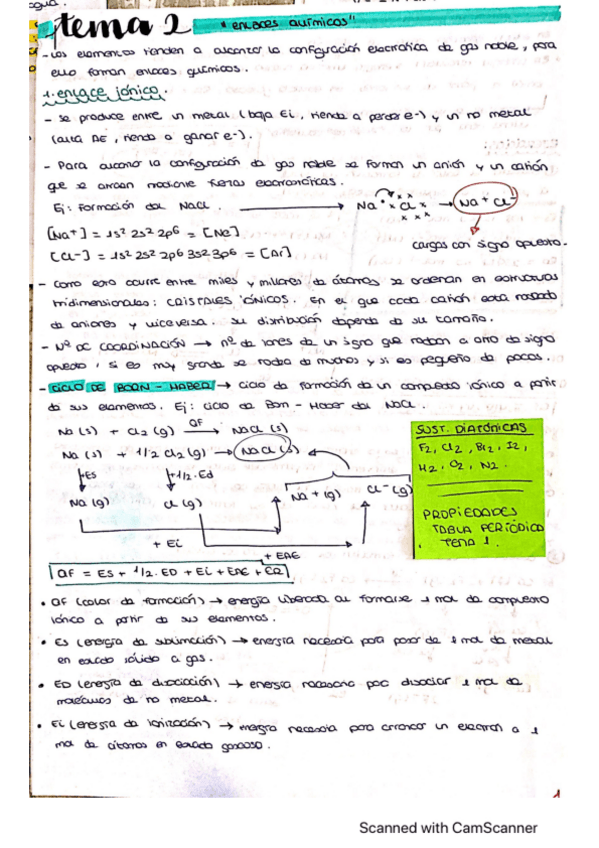 tema 2 "enlaces químicos"
- Los elementos tienden a alcanzar la configuración electrónica de gas noble, para
ello forman enlaces químicos.
1. enlace iónico.
- Se produce entre un metal (baja Ei, tiende a perder e-) y un no metal
(alta AE, tiende a ganar e-).
- Para alcanzar la configuración de gas noble se forman un anión y un catión
que se atraen mediante fuerzas electrostáticas.
Ej: Formación del NaCl. → Na Cl → Na+ Cl-
[Na+] = 1s2 2s2 2p6 = [Ne]
cargas con signo opuesto.
[Cl-] = 1s2 2s2 2p6 3s2 3p6 = [Ar]
- Como esto ocurre entre miles y millares de átomos se ordenan en estructuras
tridimensionales: CRISTALES IÓNICOS. En el que cada catión está rodeado
de aniones y viceversa. Su distribución depende de su tamaño.
- Nº DE COORDINACIÓN → nº de iones de un signo que rodean a otro de signo
opuesto, si es muy grande se rodea de muchos y si es pequeño de pocos.
- CICLO DE BORN - HABER → ciclo de formación de un compuesto iónico a partir
de sus elementos. Ej: ciclo de Born - Haber del NaCl.
Na (s) + Cl2 (g) QF → NaCl (s)
Na (s) + 1/2 Cl2 (g) → NaCl (s)
+Es +1/2 Ed
Na (g) Cl (g) Na + (g) Cl - (g)
+ Ei
+ EAE
QF = ES + 1/2 · ED + Ei + EAE + ER
SUST. DIATÓNICAS
F2, Cl2, Br2, I2,
H2, O2, N2.
PROPIEDADES
TABLA PERIÓDICA
TEMA 1.
• QF (calor de formación) → energía liberada al formarse 1 mol de compuesto
iónico a partir de sus elementos.
• ES (energía de sublimación) → energía necesaria para pasar de 1 mol de metal
en estado sólido a gas.
• ED (energía de disociación) → energía necesaria para disociar 1 mol de
moléculas de no metal.
• Ei (energía de ionización) → energía necesaria para arrancar un electrón a 1
mol de átomos en estado gaseoso.
1
Scanned with CamScanner